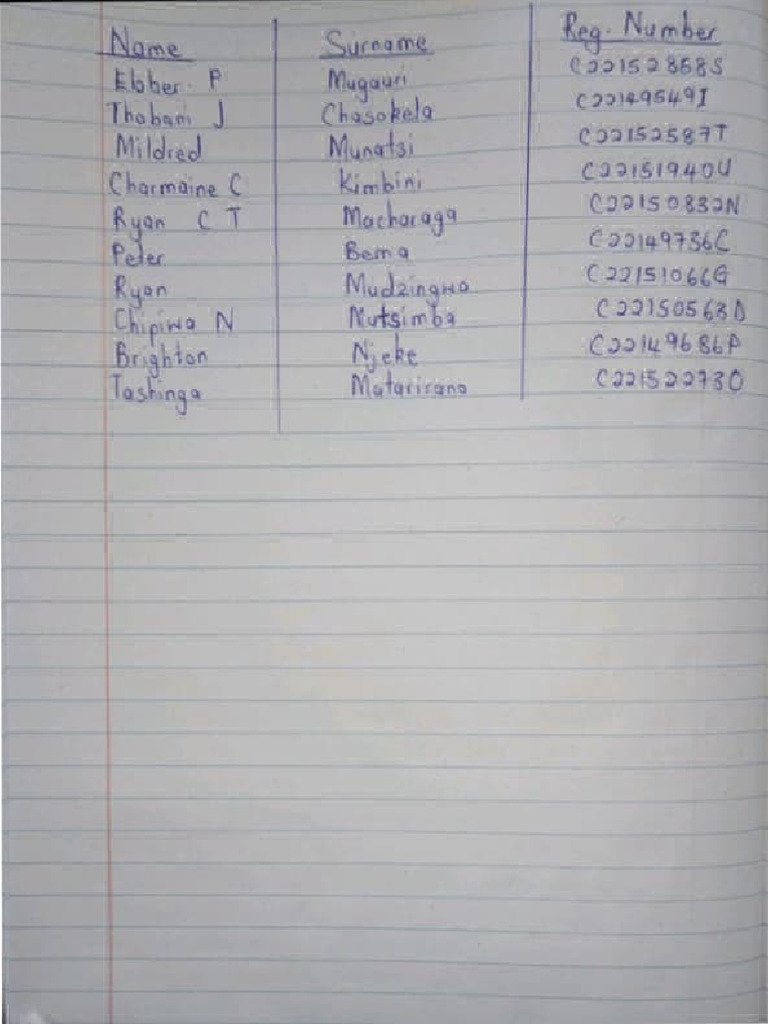 Name Surname Reg. Number
Elober P Mugauri C22152858S
Thobani J Chasokela C22149549I
Mildred Munatsi C22152587T
Charmaine C Kimbini C22151940U
Ryan C T Macharaga C22150832N
Peter Bema C22149736C
Ryan Mudzingwa C22151066G
Chipiwa N Mutsimba C22150563D
Brighton Njeke C22149686P
Tashinga Matarirano C22152273O